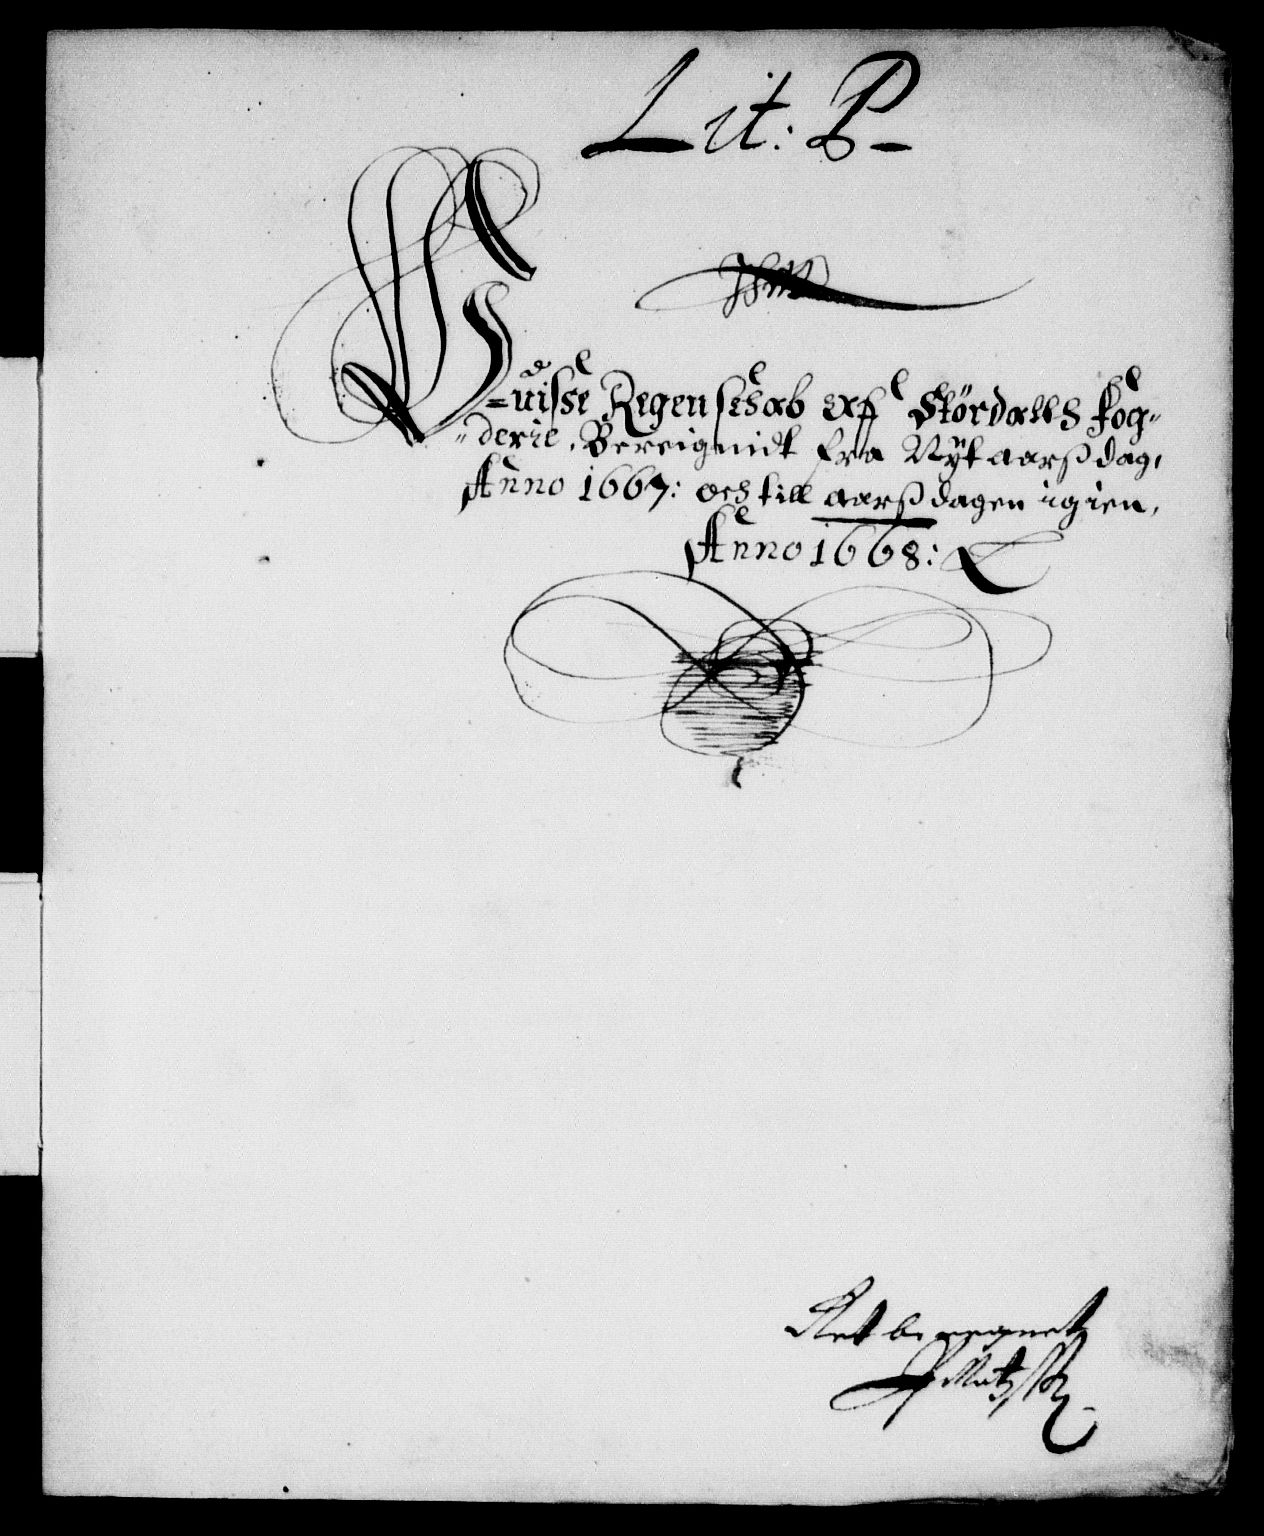 Lit: P
Vuisse Regenschab aff Stördallß fog-
derie, Bereignidt fra Nÿt aarß dag,
Anno 1667: och till aarß dagen igien,
Anno 1668:
Ret beregnet